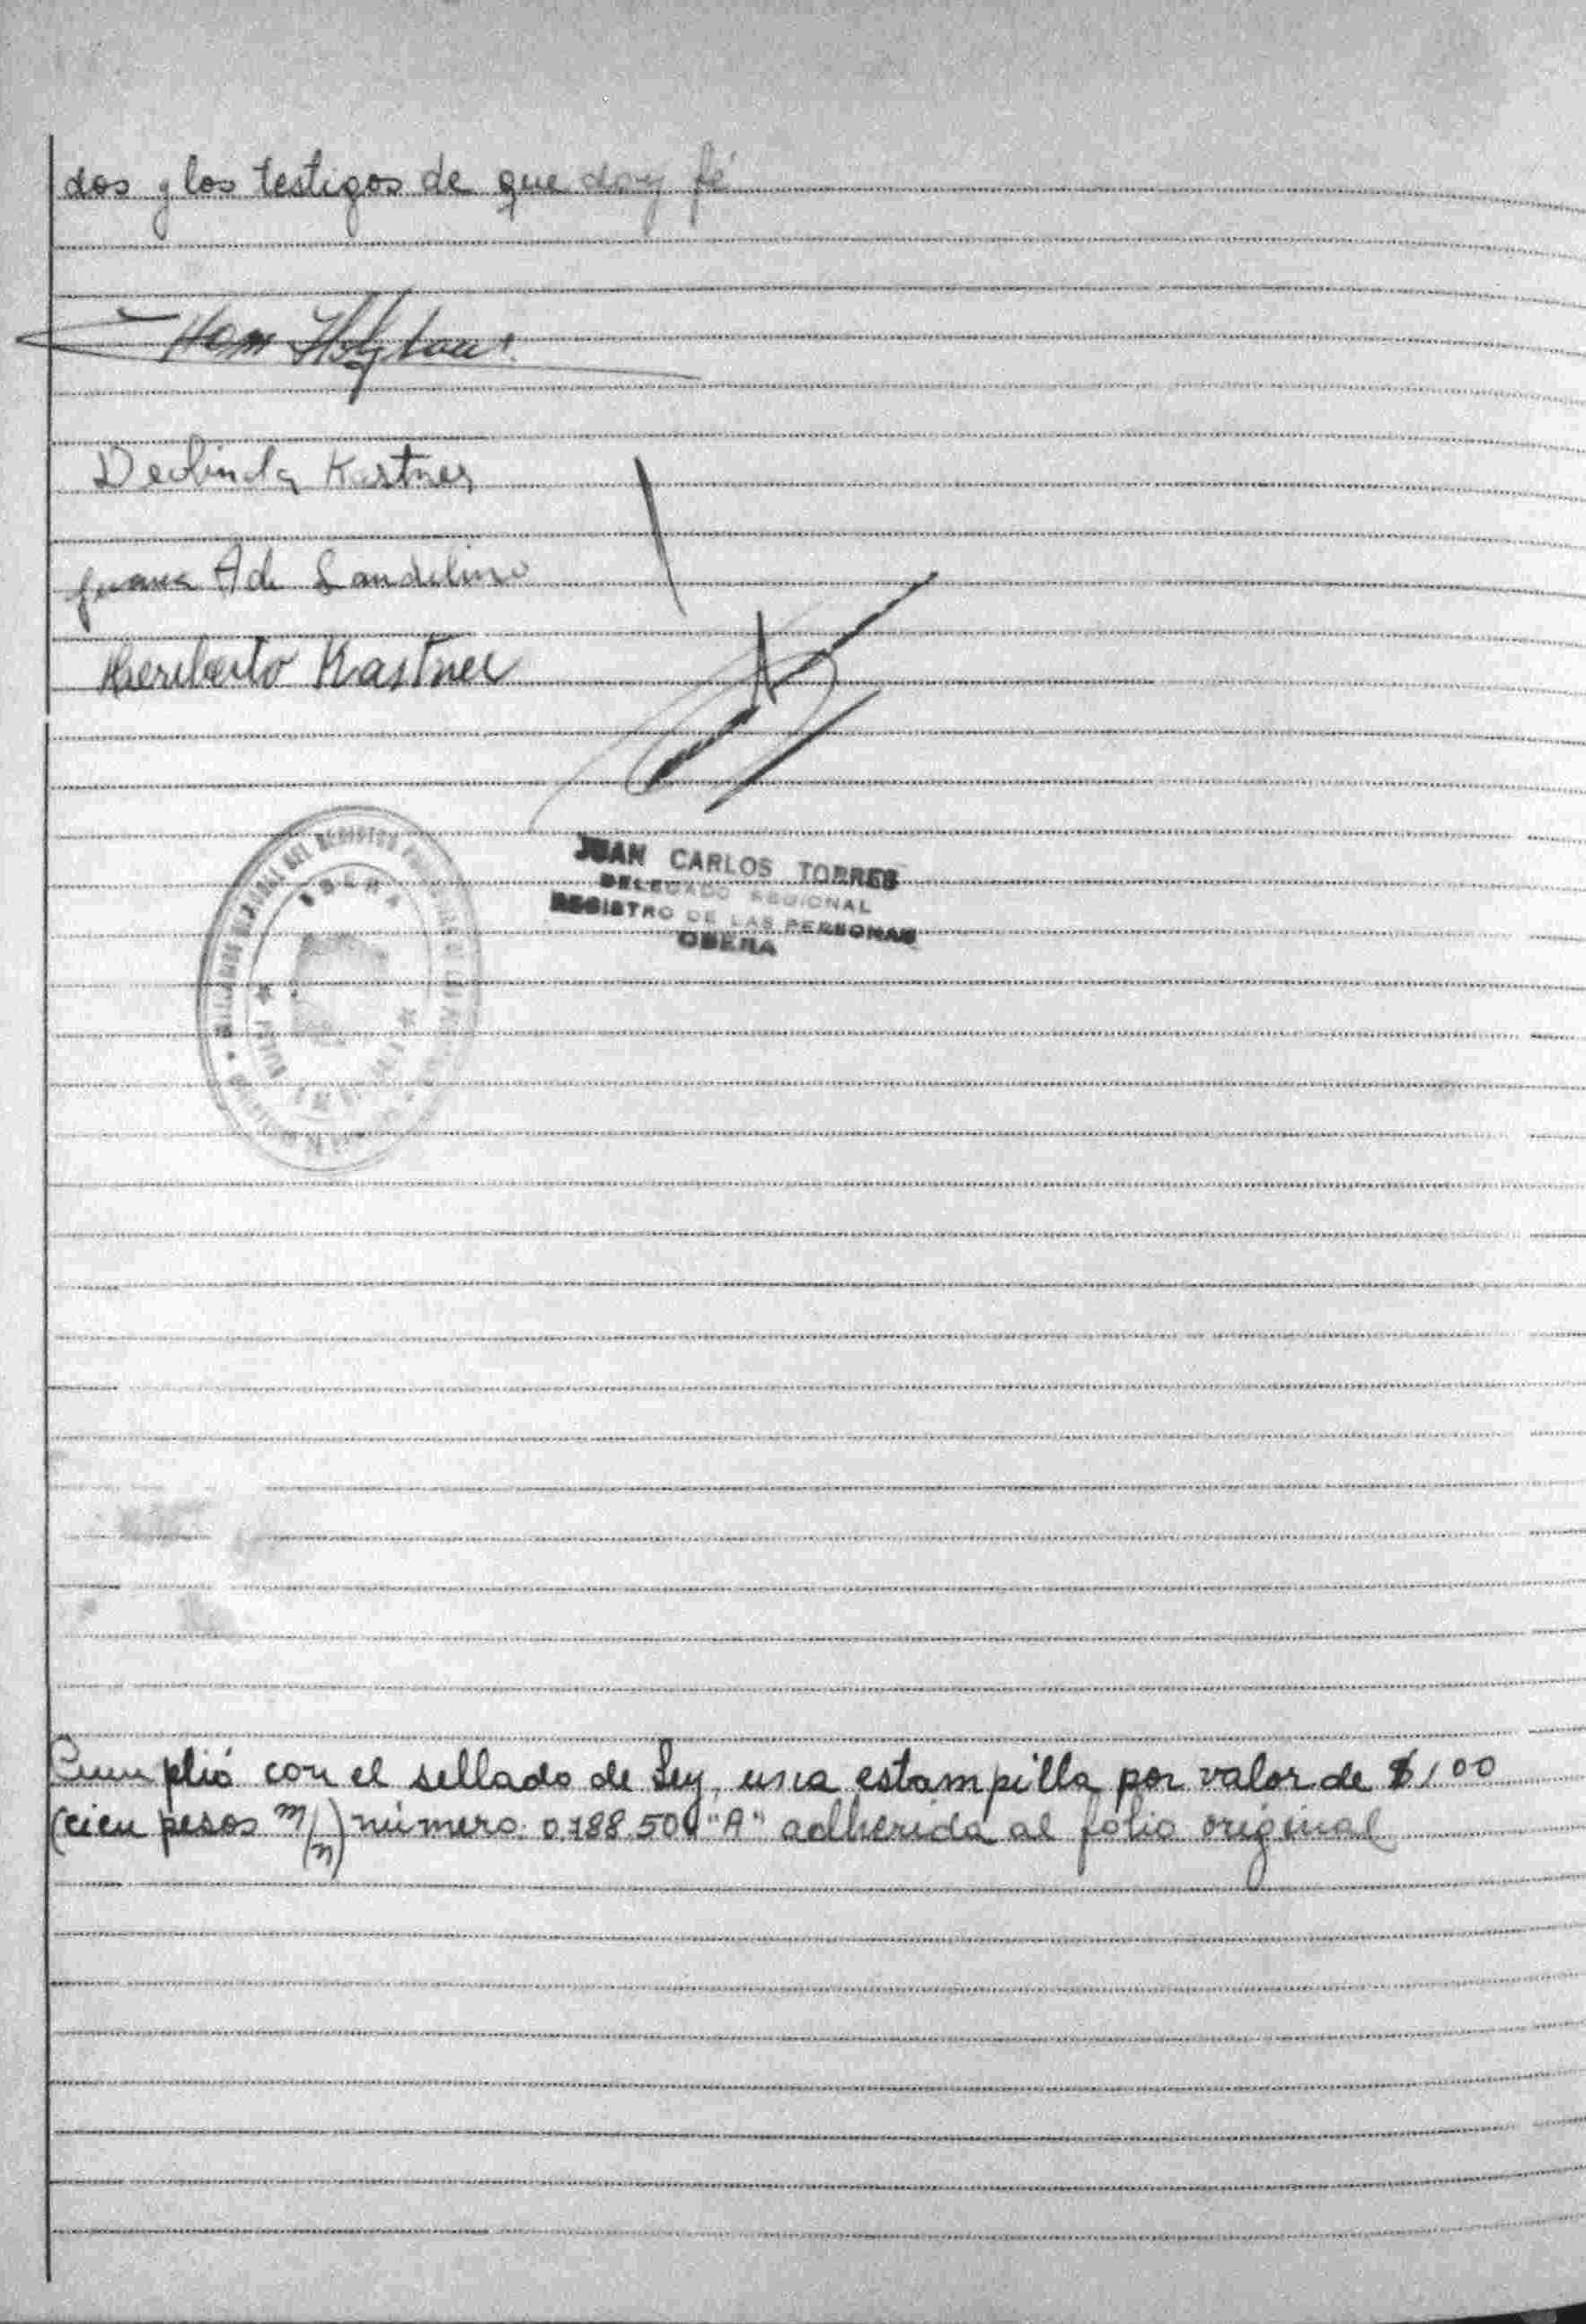 dos y los testigos de que doy fé
Deolinda Kastner
Juana A de Landolino
Heriberto Kastner
JUAN CARLOS TORRES
DELEGADO REGIONAL
REGISTRO DE LAS PERSONAS
OBERA
DEL REGISTRO
OBERA
Cumplió con el sellado de Ley, una estampilla por valor de $100
(cien pesos m/n) número 0.188.50 "A" adherida al folio original